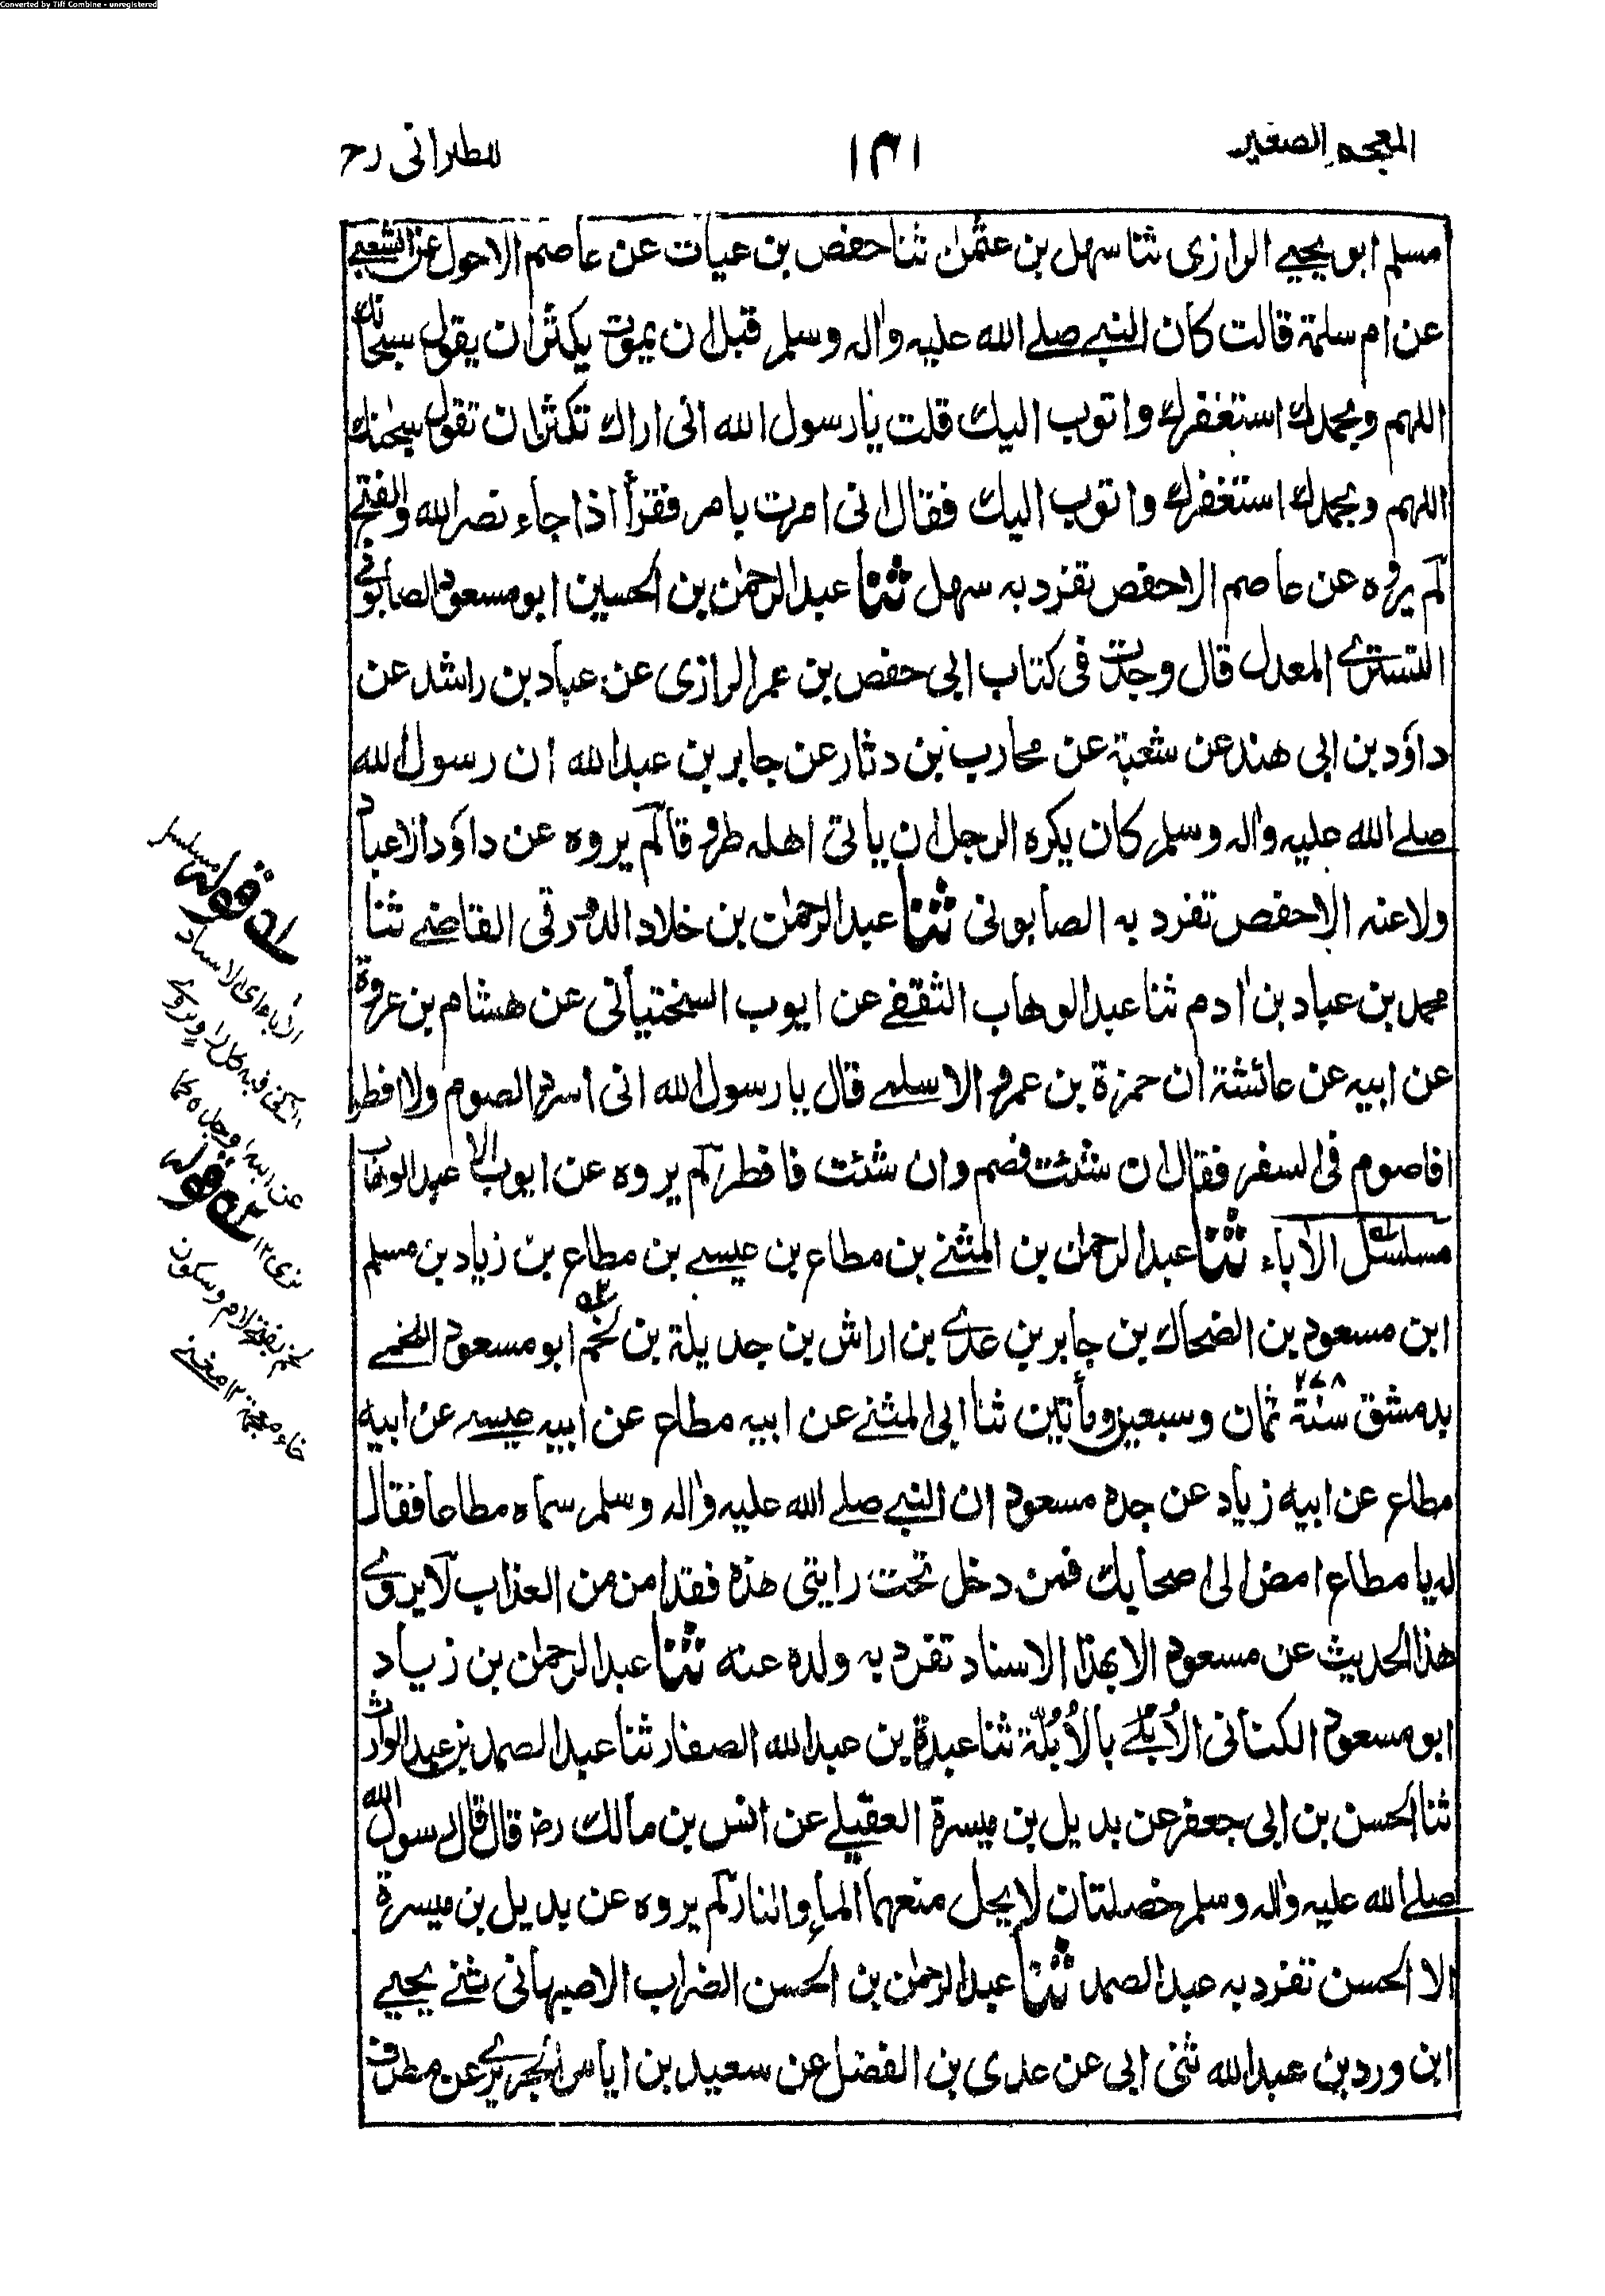 Converted by Tiff Combine - unregistered
المعجم الصغير
١٣١
للطبرانى رح
مسلم ابو يحيى الرازى ثنا سهل بن عثمٰن ثنا حفص بن غياث عن عاصم الاحول عن الشعبى
عن ام سلمة قالت كان النبى صلى الله عليه واٰله وسلم قبل ان يموت يكثر ان يقول سبحانك
اللهم وبحمدك استغفرك واتوب اليك قلت يا رسول الله انى اراك تكثر ان تقول سبحٰنك
اللهم وبحمدك استغفرك واتوب اليك فقال انى امرت بامر فقرأ اذا جاء نصر الله والفتح
لم يروه عن عاصم الا حفص تفرد به سهل ثنا عبد الرحمٰن بن الحسين ابو مسعود الصابونى
التسترى المعدل قال وجدت فى كتاب ابى حفص بن عمر الرازى عن عباد بن راشد عن
داؤد بن ابى هند عن شعبة عن محارب بن دثار عن جابر بن عبد الله ان رسول الله
صلى الله عليه واٰله وسلم كان يكره الرجل ان ياتى اهله طروقا لم يروه عن داؤد الا عباد
ولا عنه الا حفص تفرد به الصابونى ثنا عبد الرحمٰن بن خلاد الدورقى القاضى ثنا
محمد بن عباد بن اٰدم ثنا عبد الوهاب الثقفى عن ايوب السختيانى عن هشام بن عروة
عن ابيه عن عائشة ان حمزة بن عمرو الاسلمى قال يا رسول الله انى اسرد الصوم ولا افطر
افاصوم فى السفر فقال ان شئت فصم وان شئت فافطر لم يروه عن ايوب الا عبد الوهاب
مسلسل الاٰباء ثنا عبد الرحمٰن بن المثنى بن مطاع بن عيسى بن مطاع بن زياد بن مسلم
ابن مسعود بن الضحاك بن جابر بن عدى بن اراش بن جديلة بن لخم ابو مسعود اللخمى
بدمشق سنة ٢٧٨ ثمان وسبعين ومأتين ثنا ابى المثنى عن ابيه مطاع عن ابيه عيسى عن ابيه
مطاع عن ابيه زياد عن جده مسعود ان النبى صلى الله عليه واٰله وسلم سماه مطاعا فقال
له يا مطاع امض الى اصحابك فمن دخل تحت رايتى هذه فقد امن من العذاب لا يروى
هذا الحديث عن مسعود الا بهذا الاسناد تفرد به ولده عنه ثنا عبد الرحمٰن بن زياد
ابو مسعود الكنانى الاُبلّى بالاُبُلّة ثنا عبدة بن عبد الله الصفار ثنا عبد الصمد بن عبد الوارث
ثنا الحسن بن ابى جعفر عن بديل بن ميسرة العقيلى عن انس بن مالك رض قال قال رسول الله
صلى الله عليه واٰله وسلم خصلتان لا يحل منعهما الماء والنار لم يروه عن بديل بن ميسرة
الا الحسن تفرد به عبد الصمد ثنا عبد الرحمٰن بن الحسن الضراب الاصبهانى ثنى يحيى
ابن ورد بن عبد الله ثنى ابى عن عدى بن الفضل عن سعيد بن اياس الجريرى عن مطرف
قوله مسلسل
الاٰباء اى الاسناد
عن ابيه
قوله
لخم بفتح لام وسكون
خاء معجمة ١٢ مغنى